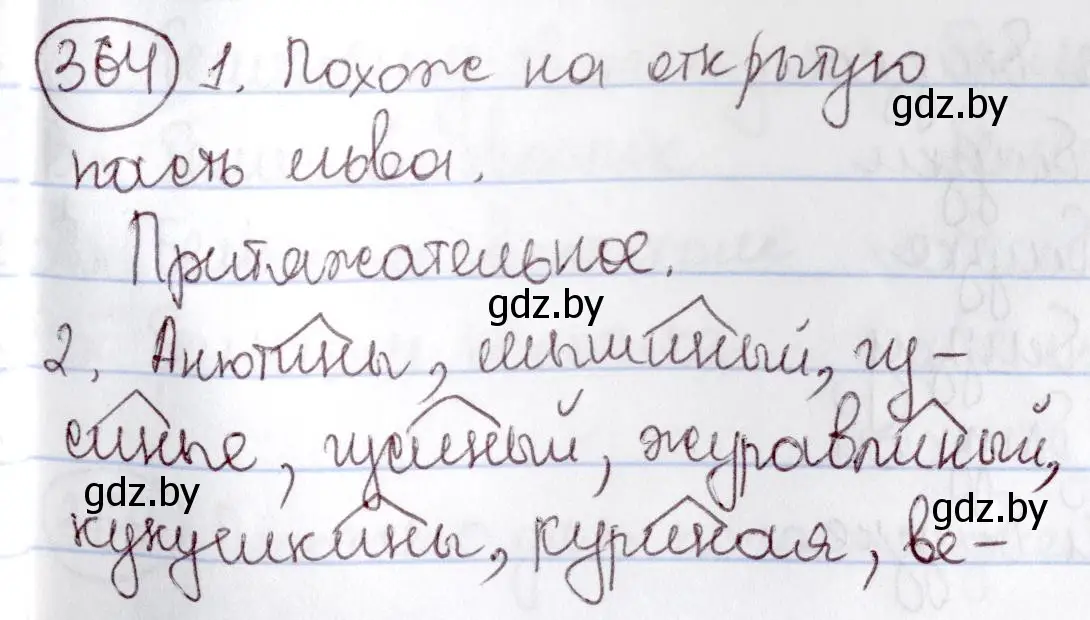 364 1. Похоже на открытую
gdz.by
пасть льва.
Притяжательное.
gdz.by
2. Анютины, мышиный, гу-
синые, гусиный, журавлиный,
gdz.by
gdz.by
кукушкины, куриная, ве-